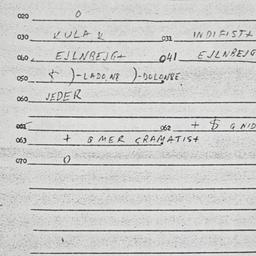 020 0
030 KULAK 031 INDIFIST+
040 EJLNBEJG+ 041 EJLNBEJG
050 )-LADO,NB )-DOLONBE
060 JEDER
061 062 + $ GNID
063 + GMER CRAMATIST
070 0